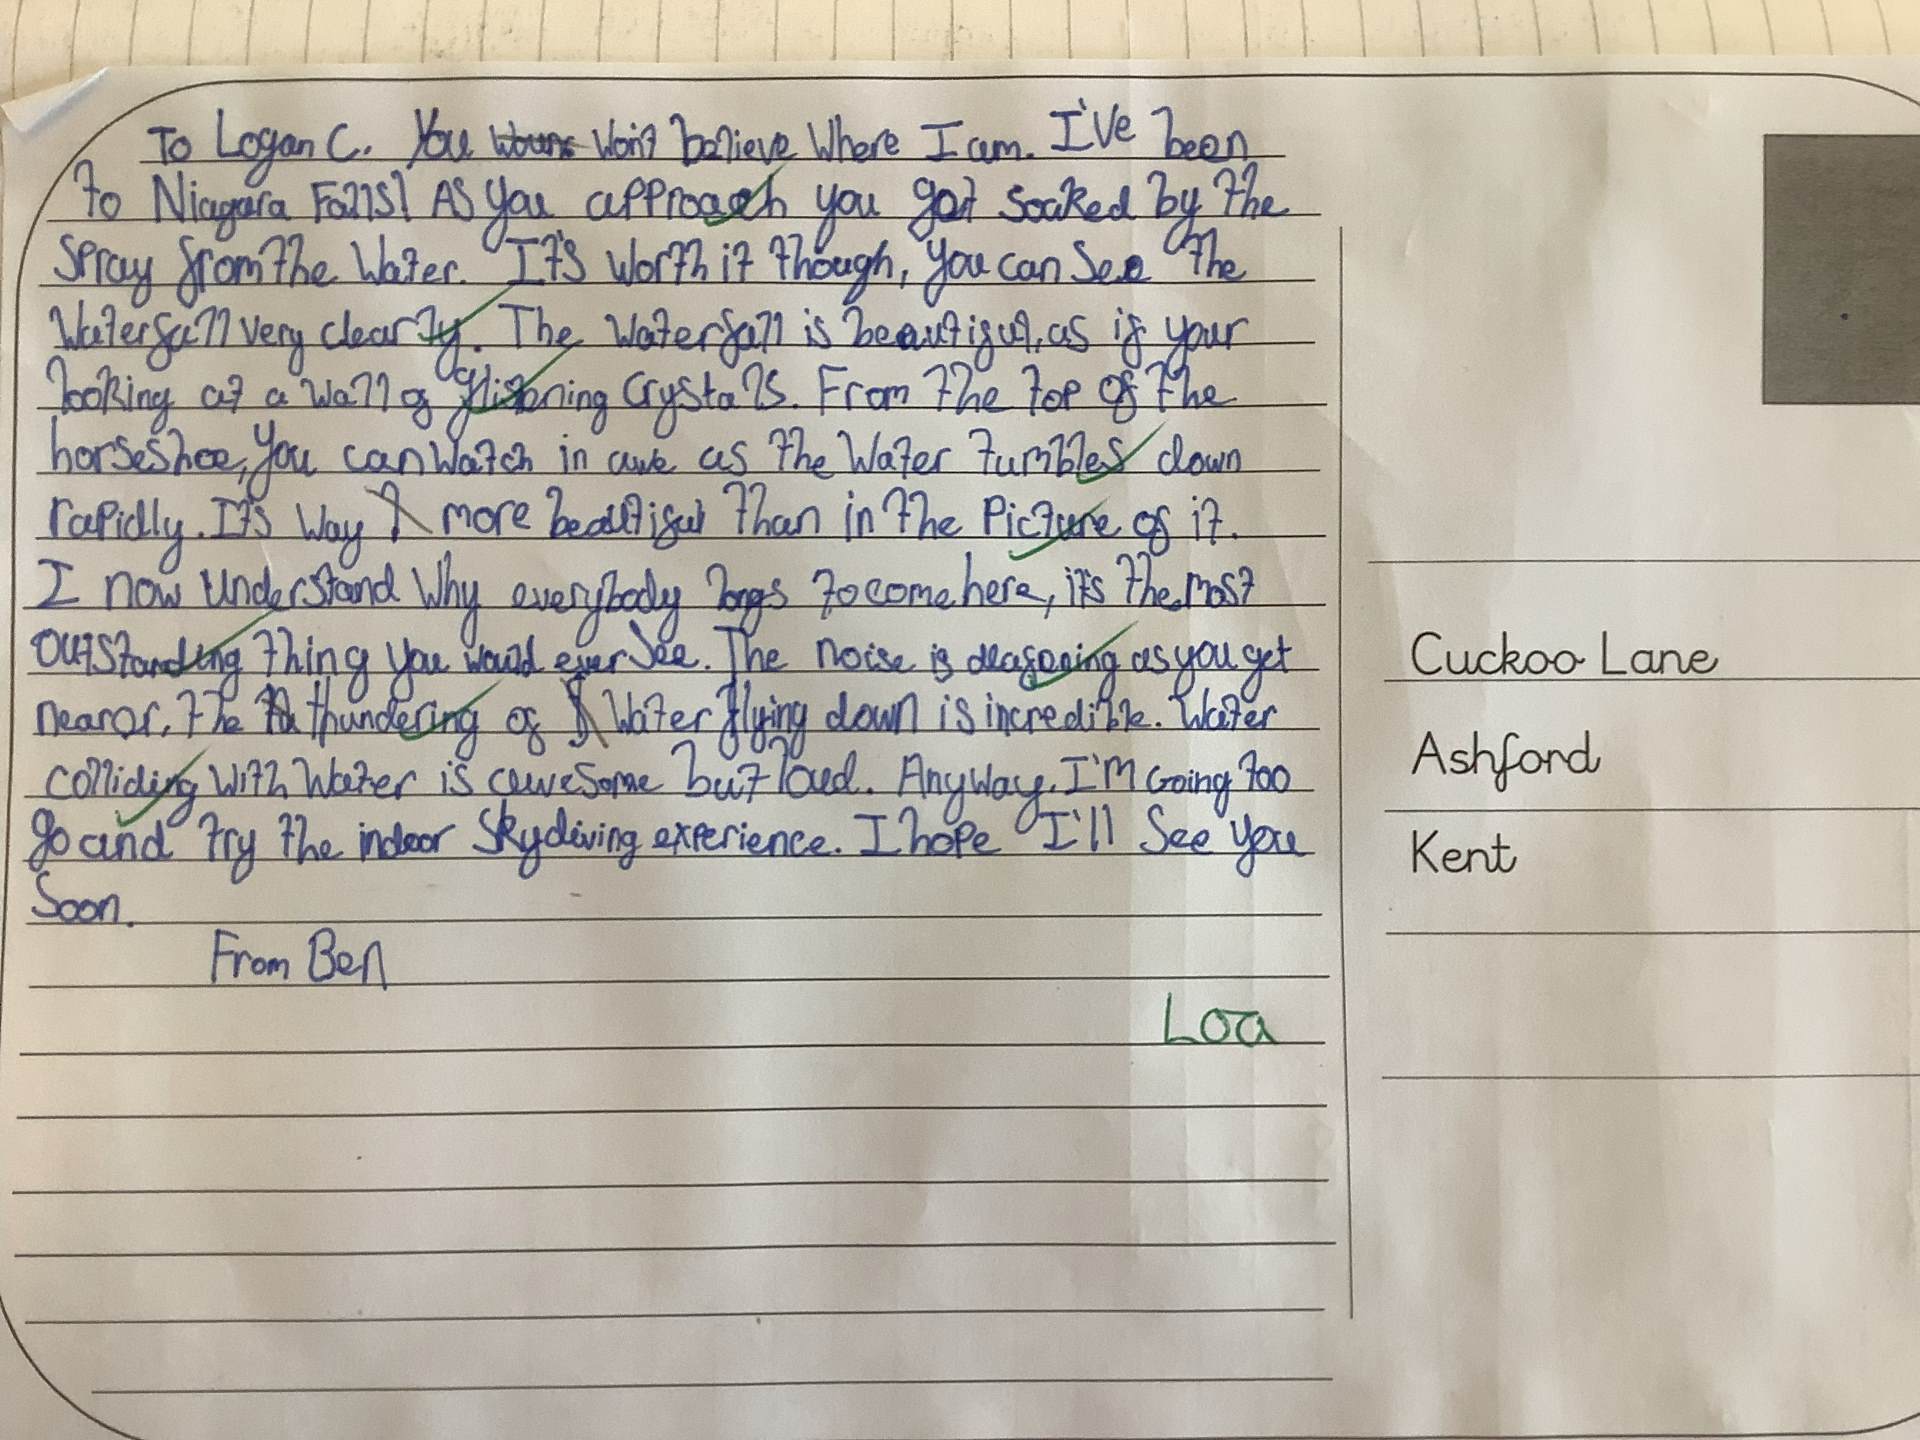 To Logan C. You won't believe Where I am. I've been
to Niagara Falls! As you approach you get soaked by the
spray from the Water. It's worth it though, you can see the
Waterfall very clearly. The Waterfall is beautiful, as if your
looking at a wall of glistening crystals. From the top of the
horseshoe, you can watch in awe as the Water tumbles down
rapidly. It's way more beautiful than in the Picture of it.
I now understand Why everybody longs to come here, it's the most
outstanding thing you would ever see. The noise is deafening as you get
nearer, the thundering of Water flying down is incredible. Water
colliding with Water is awesome but loud. Anyway, I'm Going too
go and try the indoor Skydiving experience. I hope I'll see you
soon.
From Ben
LOa
Cuckoo Lane
Ashford
Kent